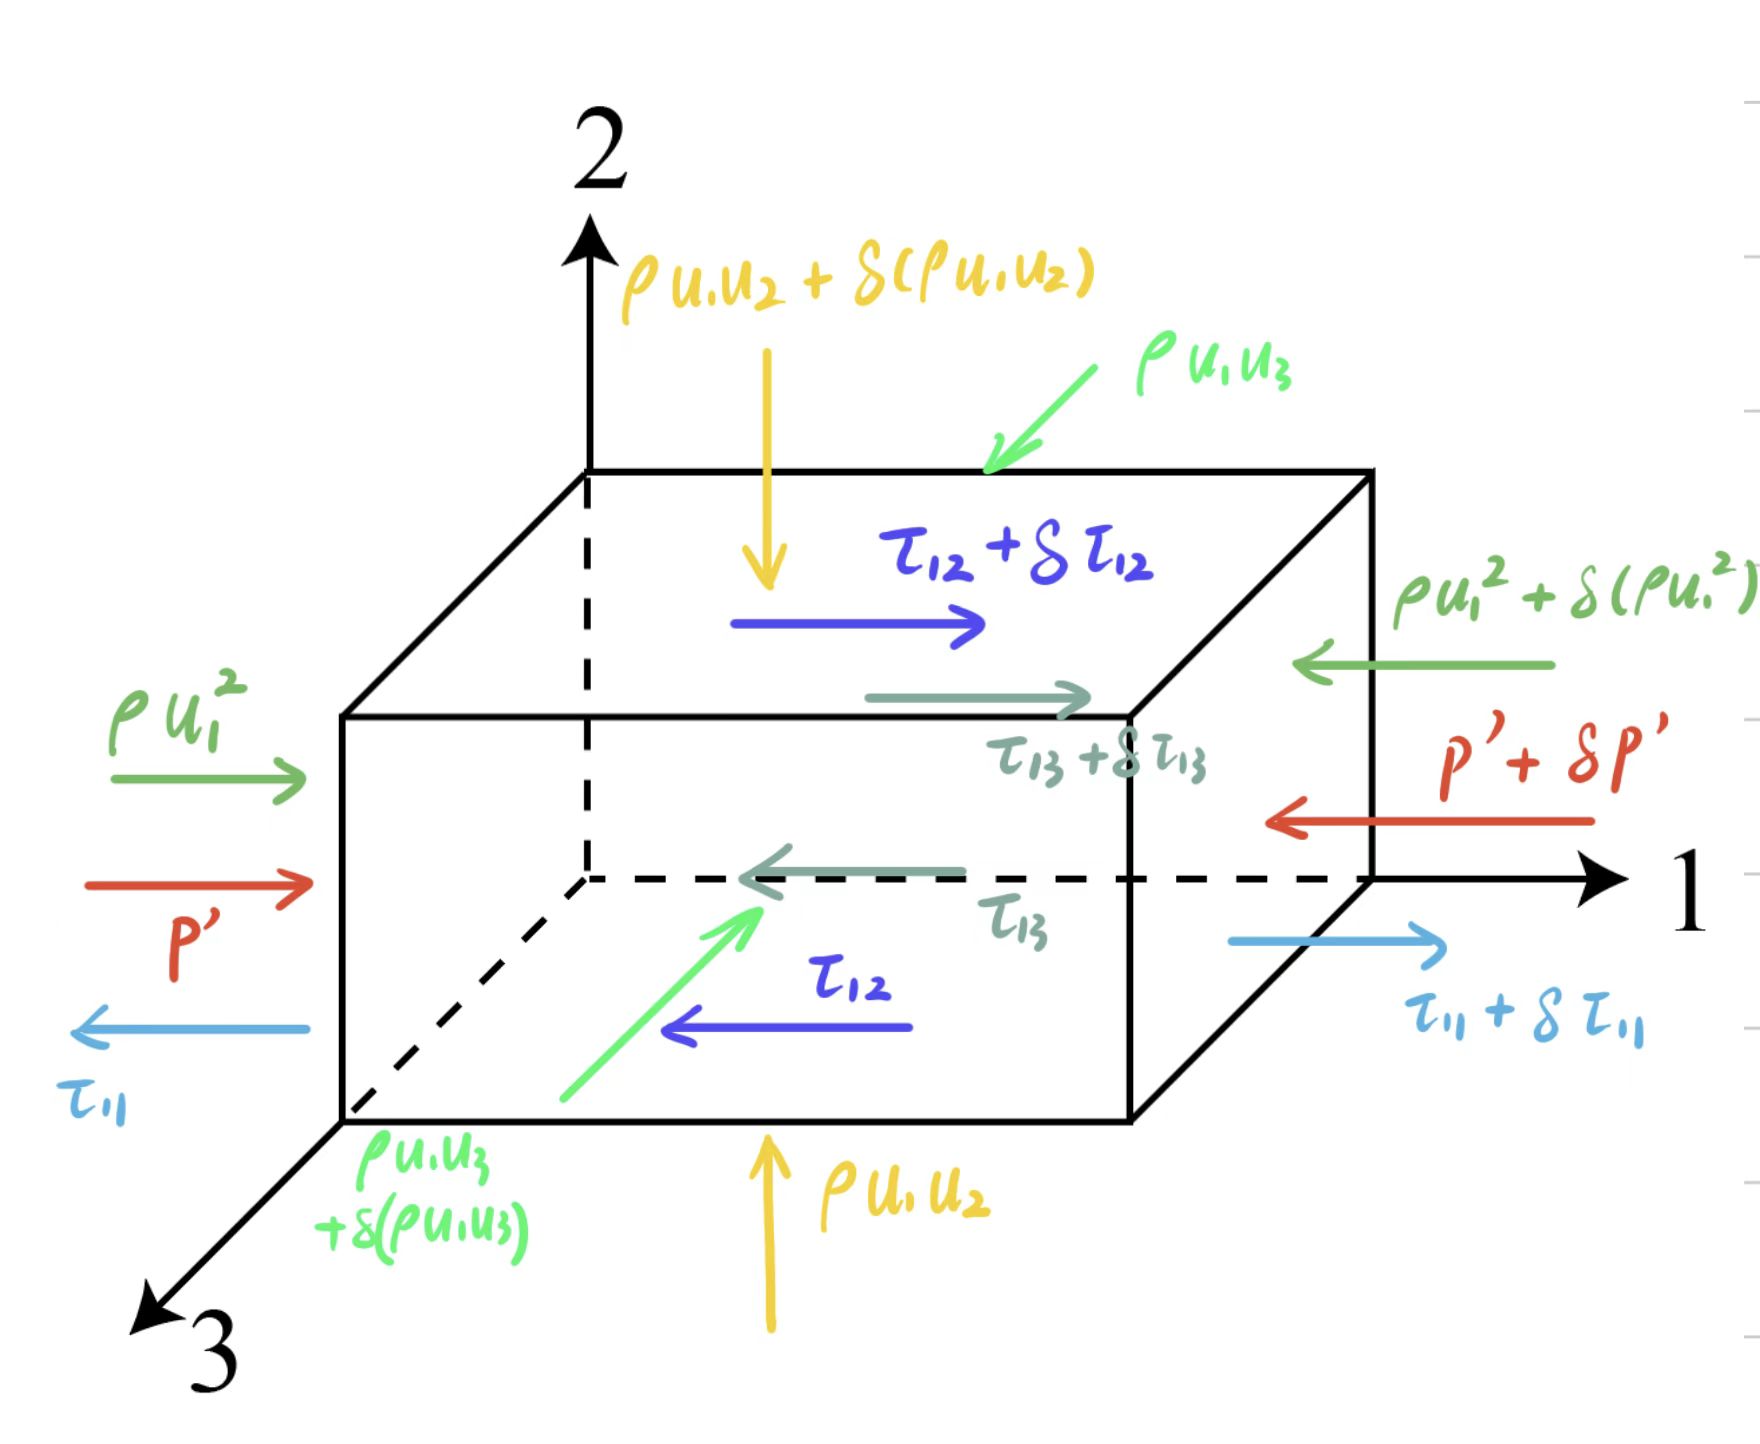 2
ρu₁u₂ + δ(ρu₁u₂)
ρu₁u₃
τ₁₂ + δτ₁₂
ρu₁² + δ(ρu₁²)
ρu₁²
τ₁₃ + δτ₁₃
p' + δp'
1
τ₁₃
p'
τ₁₂
τ₁₁ + δτ₁₁
τ₁₁
ρu₁u₃
+δ(ρu₁u₃)
ρu₁u₂
3